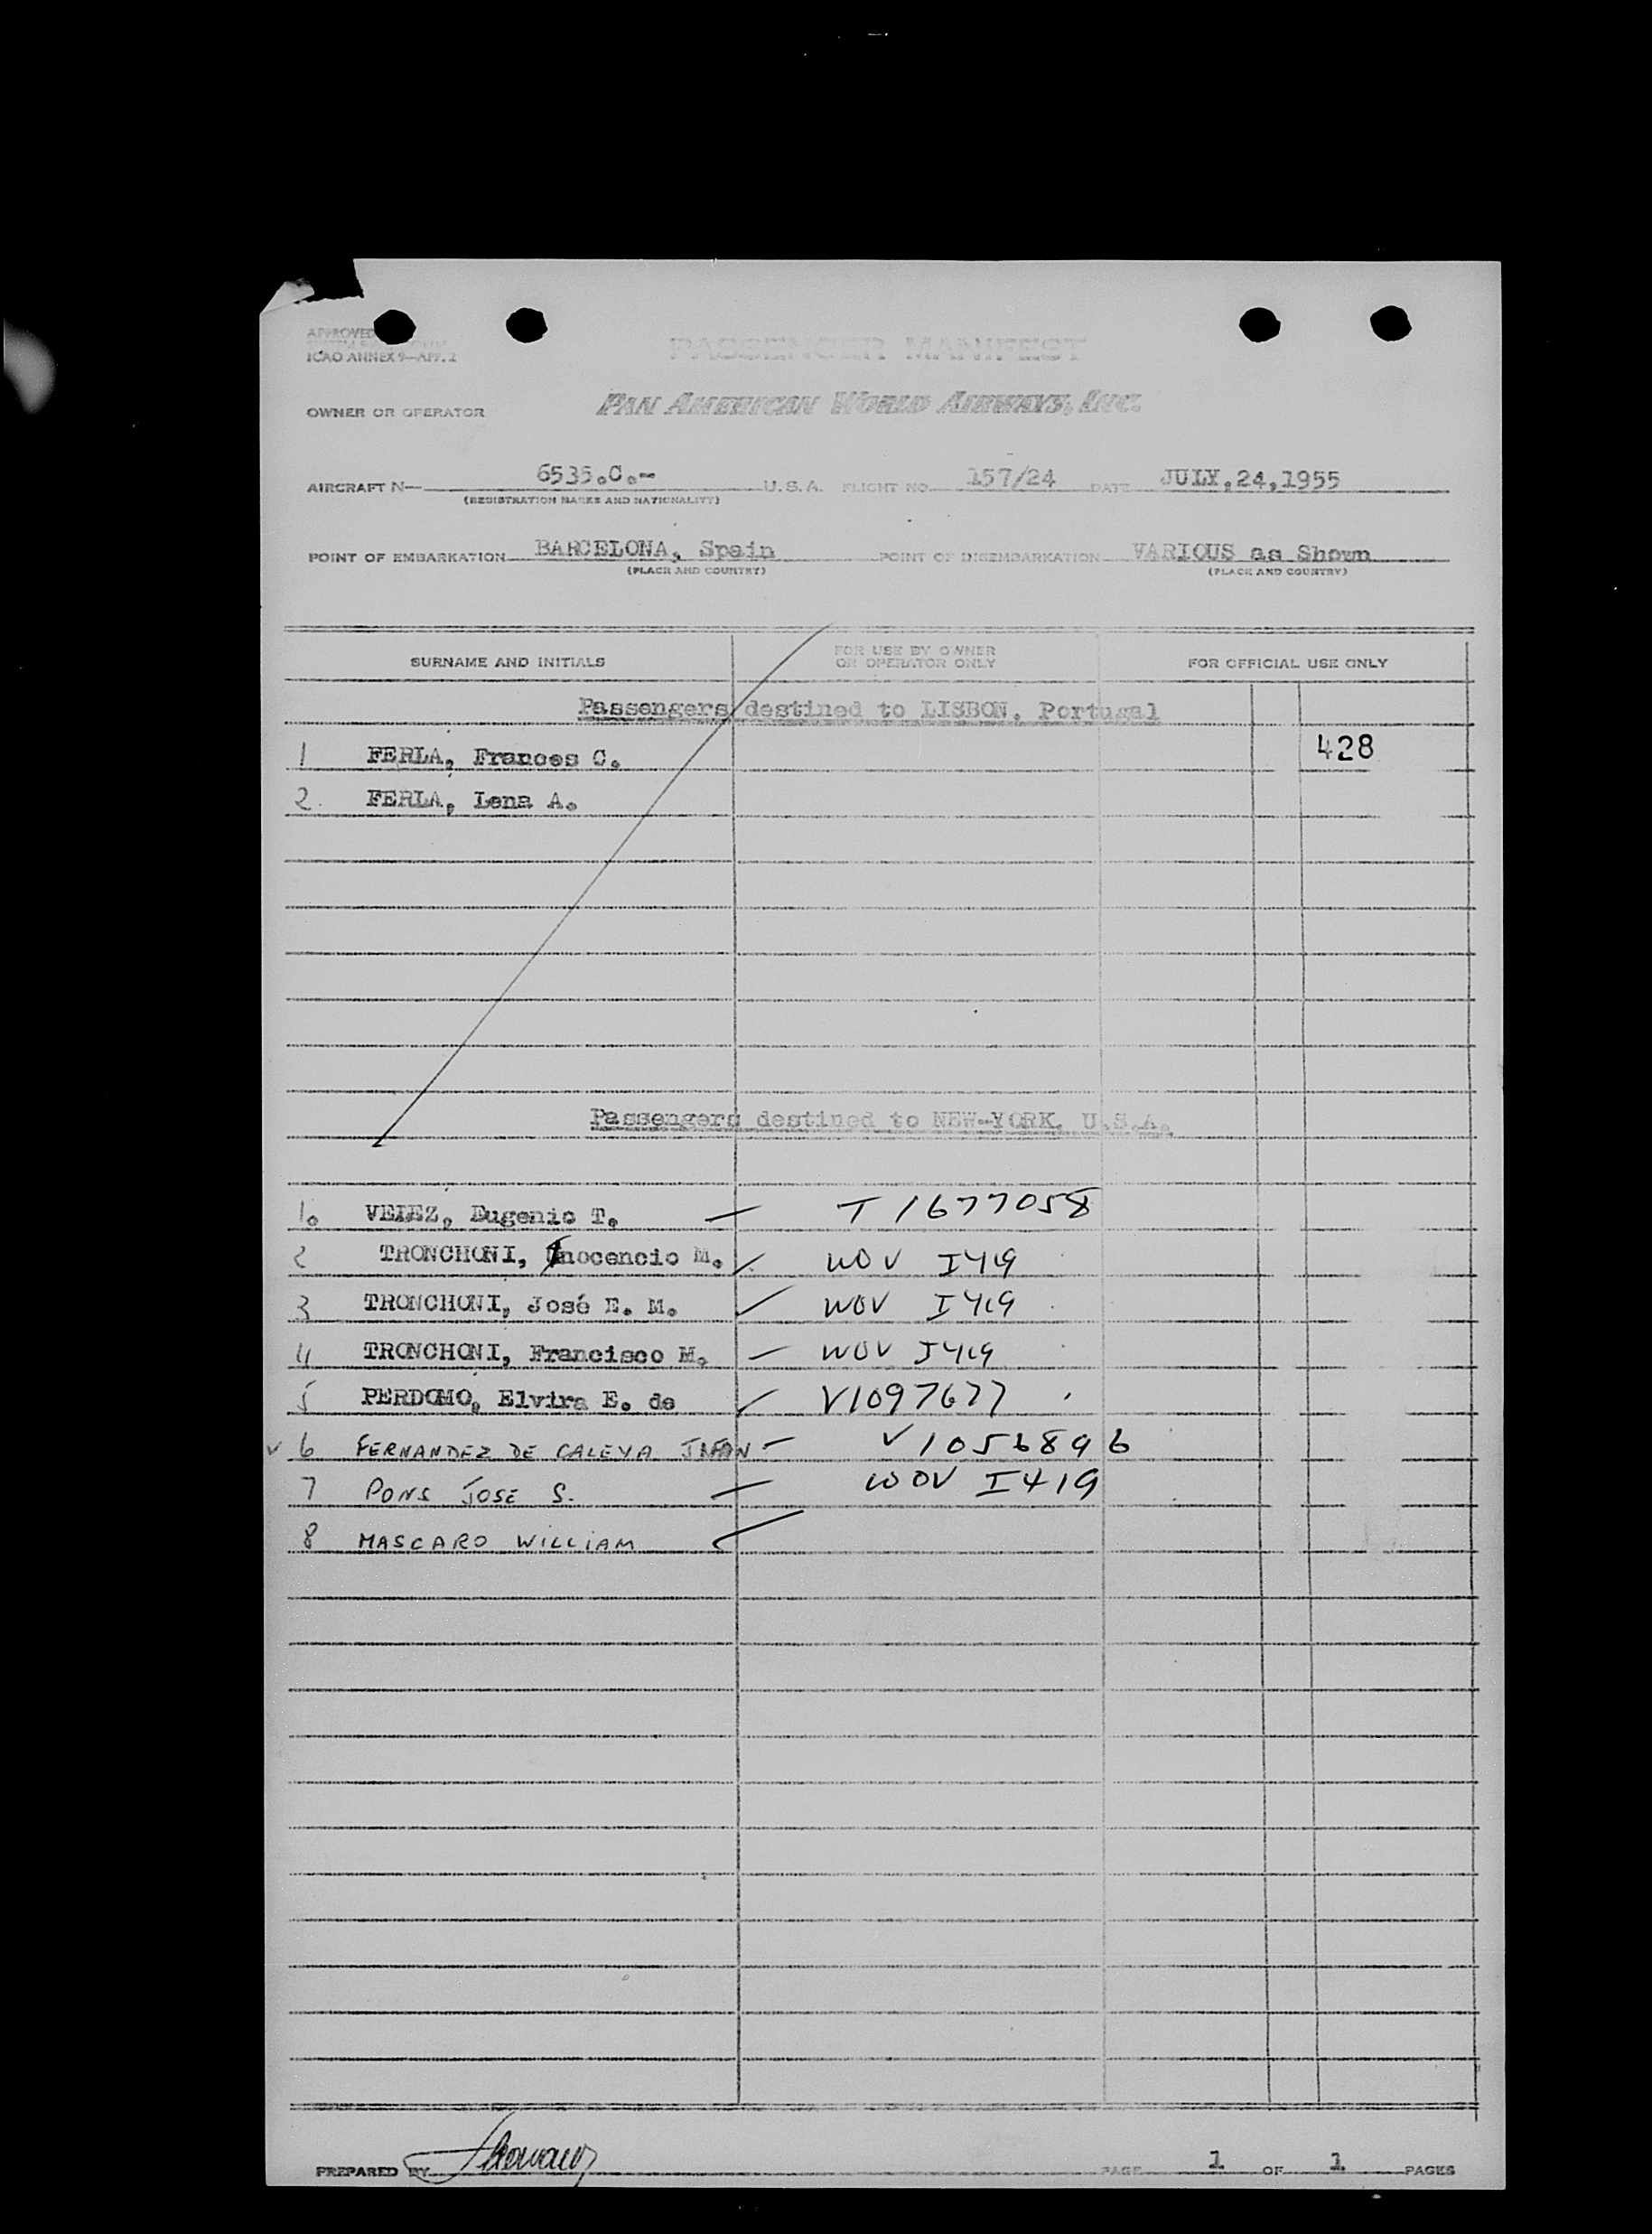 APPROVED
ICAO ANNEX 9—APP. 2
PASSENGER MANIFEST
OWNER OR OPERATOR PAN AMERICAN WORLD AIRWAYS, INC.
AIRCRAFT N— 6535.C.- U.S.A. FLIGHT NO. 157/24 DATE JULY,24,1955
(REGISTRATION MARKS AND NATIONALITY)
POINT OF EMBARKATION BARCELONA, Spain POINT OF DISEMBARKATION VARIOUS as Shown
(PLACE AND COUNTRY) (PLACE AND COUNTRY)
SURNAME AND INITIALS FOR USE BY OWNER OR OPERATOR ONLY FOR OFFICIAL USE ONLY
Passengers destined to LISBON, Portugal
1 FERLA, Frances C. 428
2. FERLA, Lena A.
Passengers destined to NEW-YORK, U.S.A.
1. VELEZ, Eugenio T. — T 1677058
2 TRONCHONI, Inocencio M. ✓ WOV I419
3 TRONCHONI, José E. M. ✓ WOV I419
4 TRONCHONI, Francisco M. — WOV I419
5 PERDOMO, Elvira E. de ✓ V1097677
✓ 6 FERNANDEZ DE CALEYA — V1056896
7 PONS JOSE S. — WOV I419
8 MASCARO WILLIAM ✓
PREPARED BY PAGE 1 OF 1 PAGES